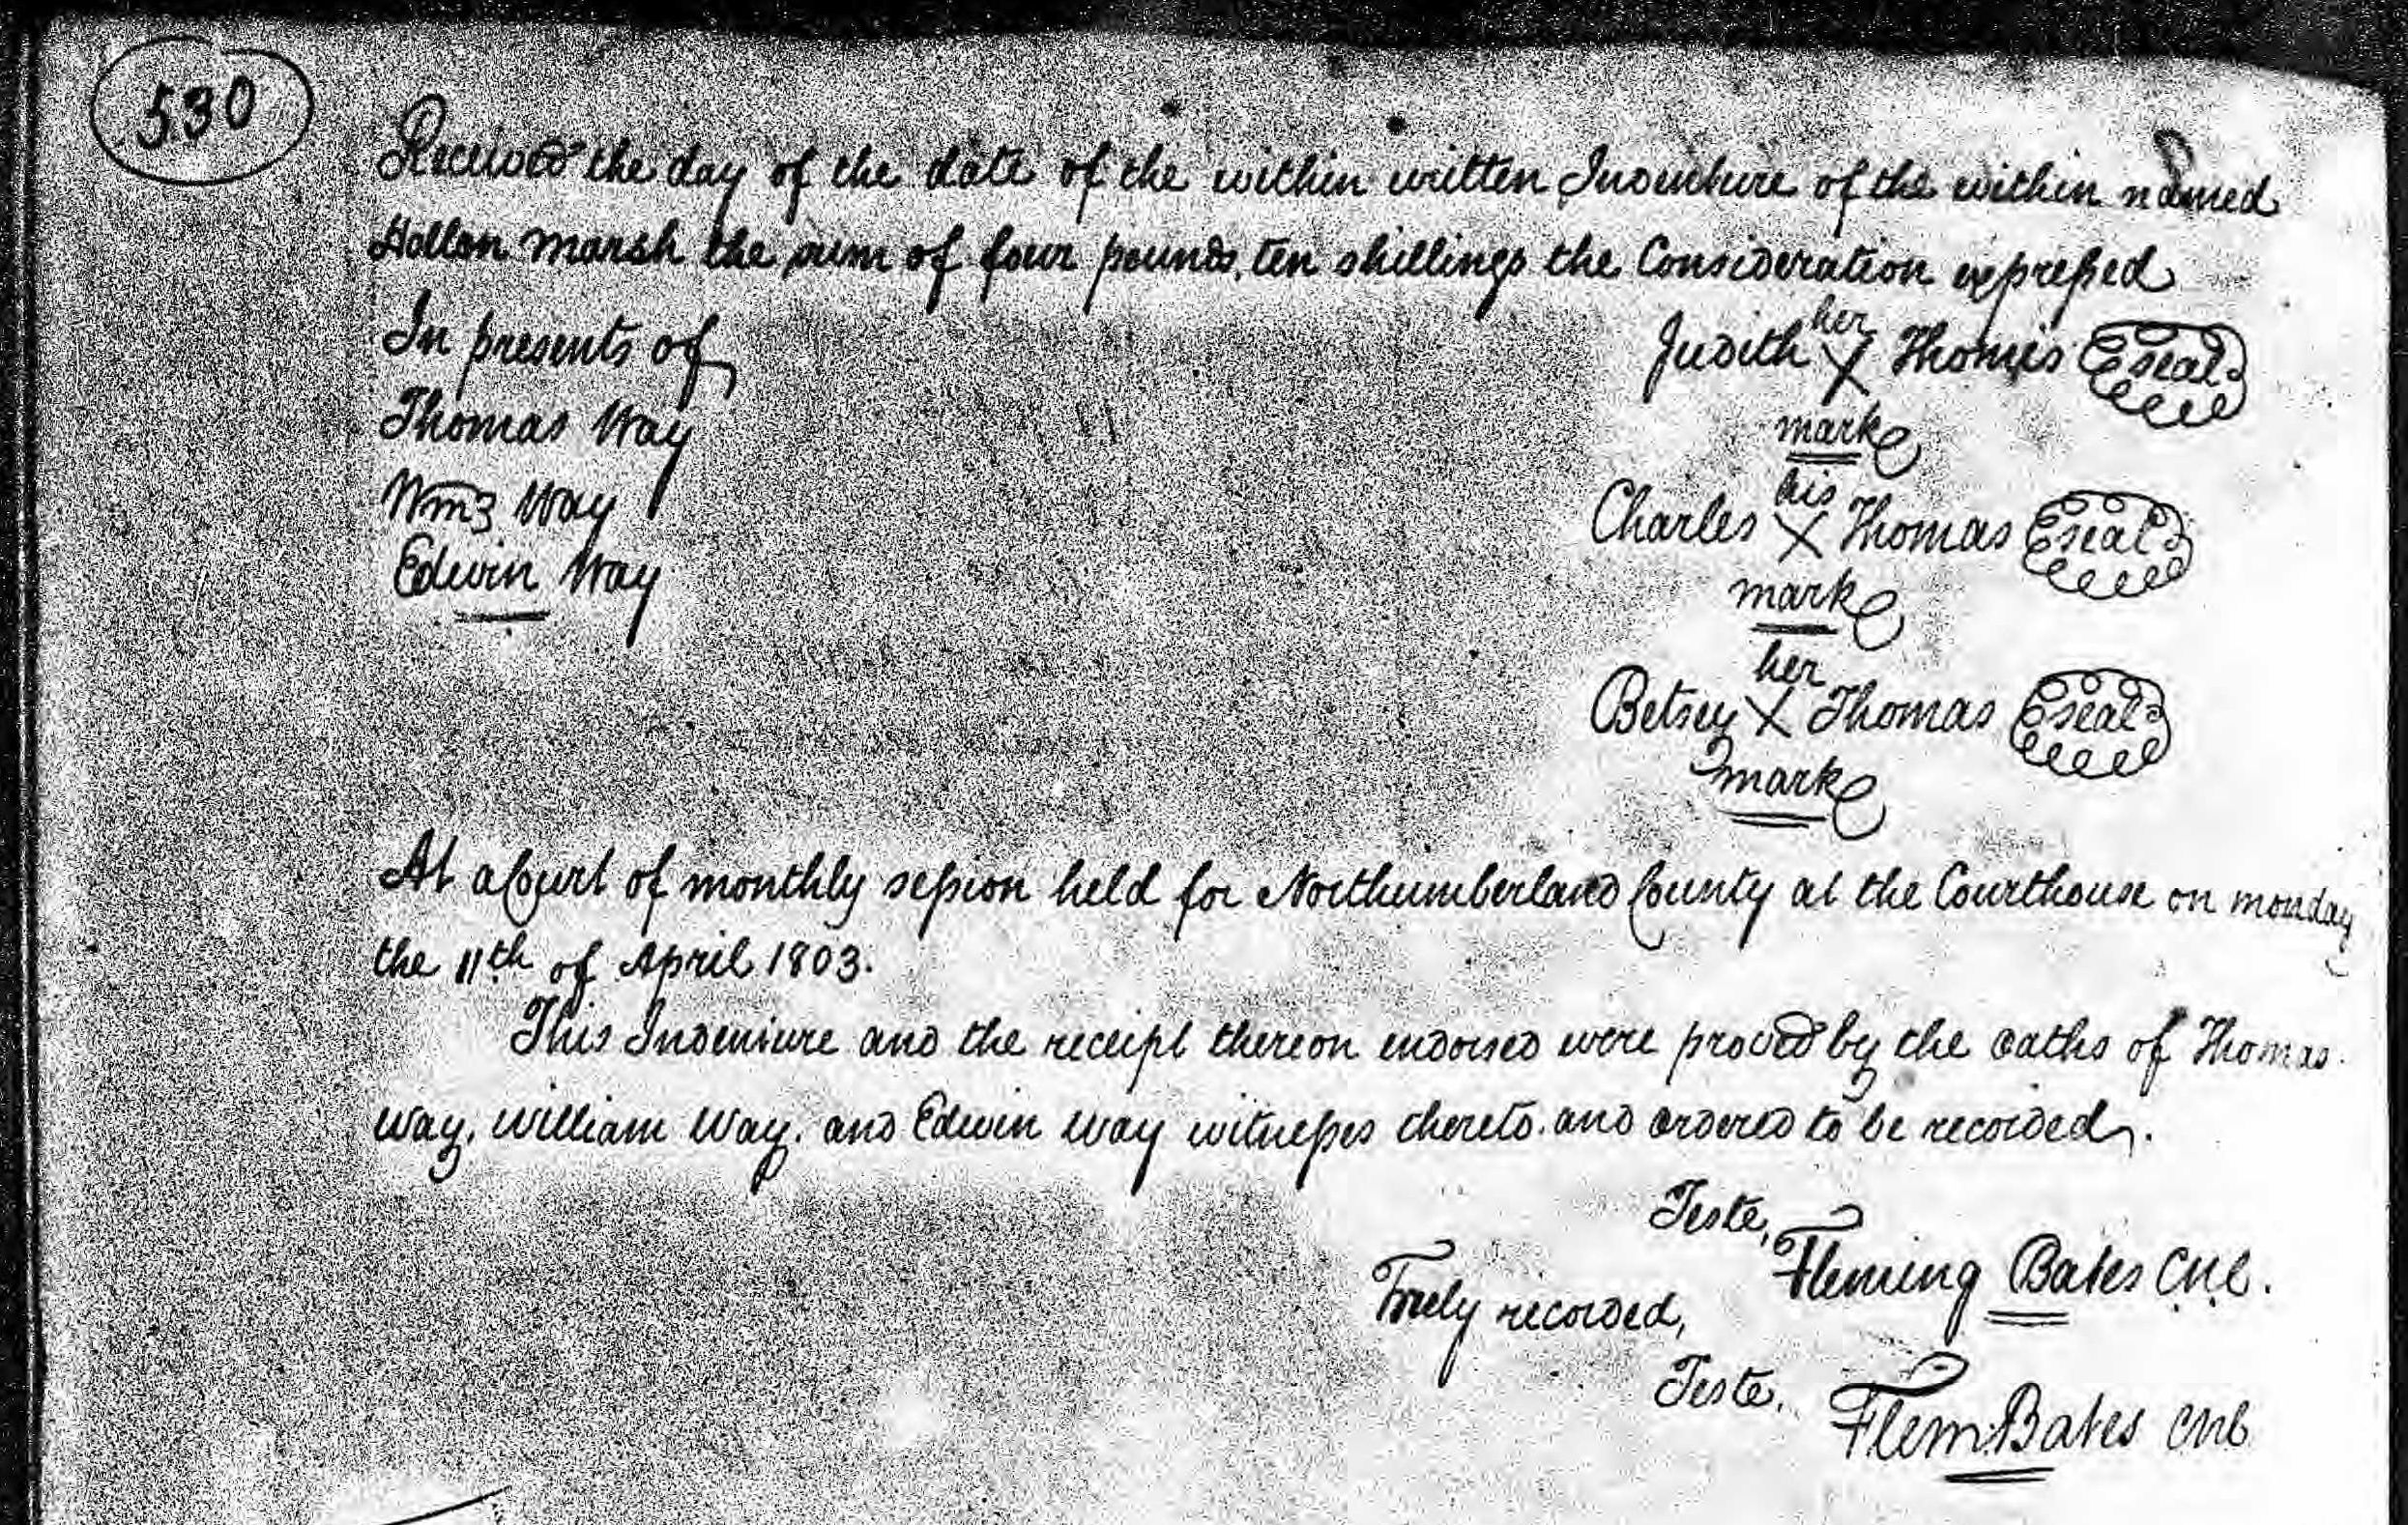 530
Received the day of the date of the within written Indenture of the within named
Hollon Marsh the sum of four pounds, ten shillings the Consideration expressed
In presents of
Thomas Way
Wm3 Way
Edwin Way
her
Judith X Thomas seal
mark
his
Charles X Thomas seal
mark
her
Betsey X Thomas seal
mark
At a Court of monthly session held for Northumberland County at the Courthouse on monday
the 11th of April 1803.
This Indenture and the receipt thereon endorsed were proved by the oaths of Thomas
Way, William Way, and Edwin Way witnesses thereto. and ordered to be recorded.
Teste,
Fleming Bates CNC.
Truly recorded,
Teste, Flem: Bates CNC